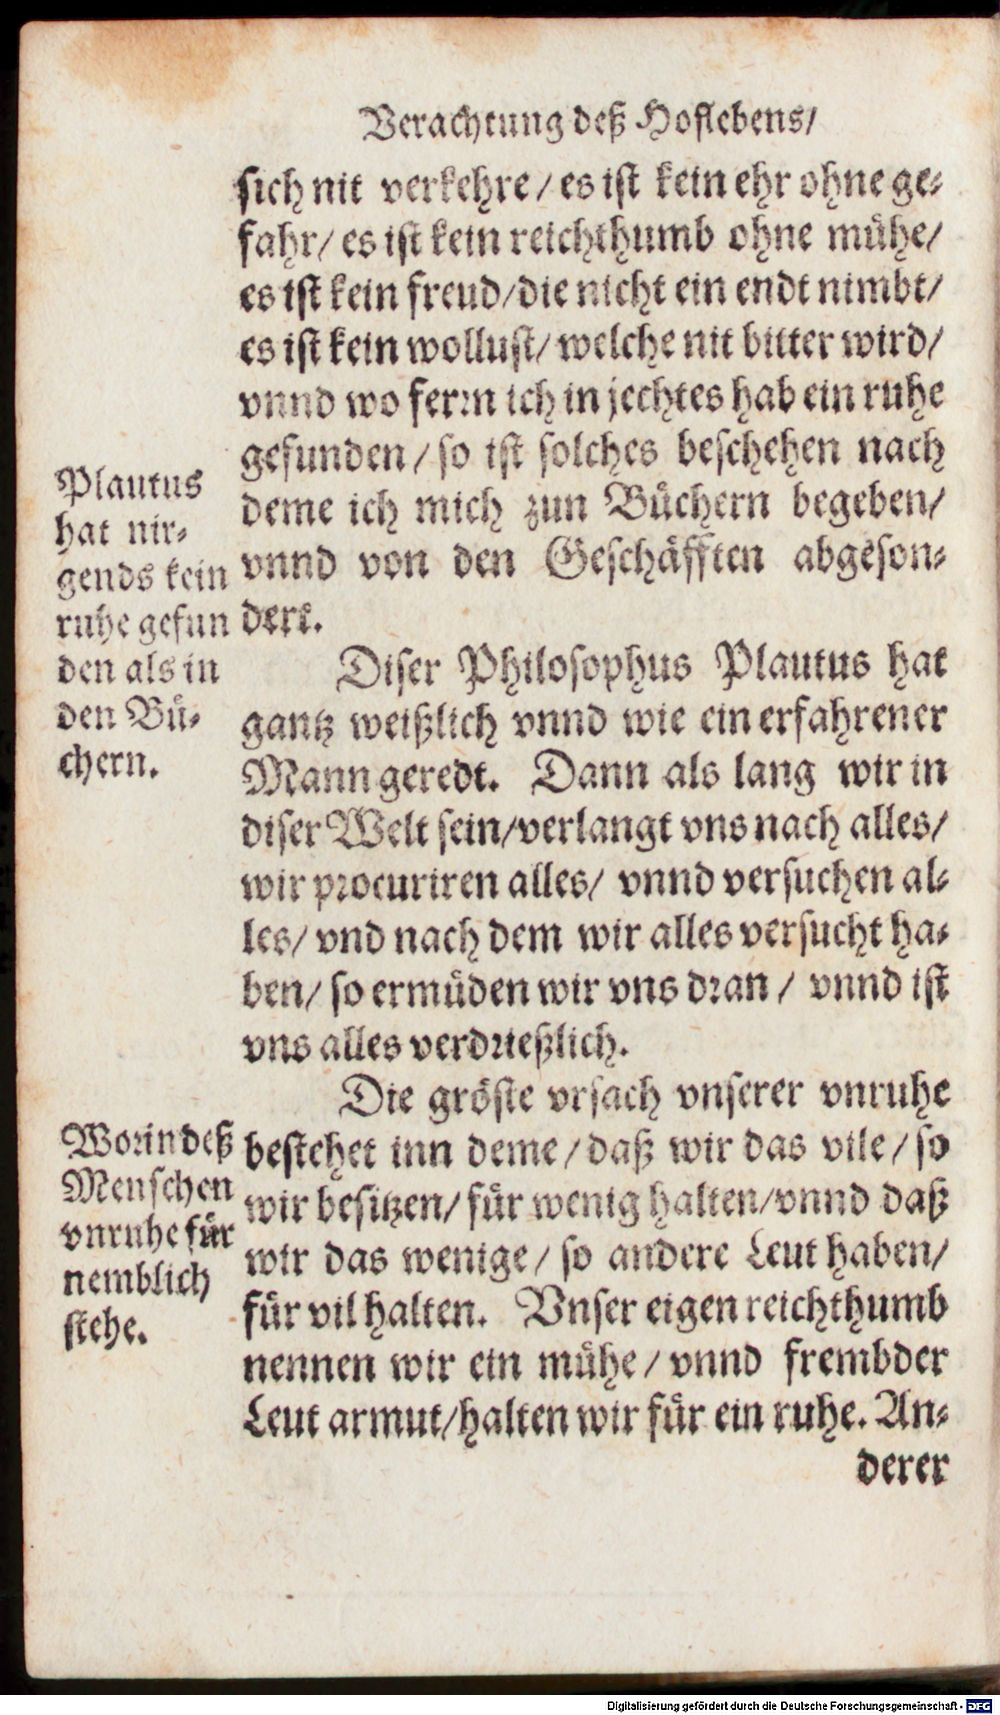 Verachtung deß Hoflebens/
sich nit verkehre/ es ist kein ehr ohne ge-
fahr/ es ist kein reichthumb ohne mühe/
es ist kein freud/ die nicht ein endt nimbt/
es ist kein wollust/ welche nit bitter wird/
vnnd wo ferrn ich in jechtes hab ein ruhe
gefunden/ so ist solches beschehen nach
deme ich mich zun Büchern begeben/
vnnd von den Geschäfften abgeson-
dert.
Plautus
hat nir-
gends kein
ruhe gefun
den als in
den Bü-
chern.
Diser Philosophus Plautus hat
gantz weißlich vnnd wie ein erfahrener
Mann geredt. Dann als lang wir in
diser Welt sein/ verlangt vns nach alles/
wir procuriren alles/ vnnd versuchen al-
les/ vnd nach dem wir alles versucht ha-
ben/ so ermüden wir vns dran/ vnnd ist
vns alles verdrießlich.
Die gröste vrsach vnserer vnruhe
bestehet inn deme/ daß wir das vile/ so
wir besitzen/ für wenig halten/ vnnd daß
wir das wenige/ so andere Leut haben/
für vil halten. Vnser eigen reichthumb
nennen wir ein mühe/ vnnd frembder
Leut armut/ halten wir für ein ruhe. An-
derer
Worin deß
Menschen
vnruhe für
nemblich
stehe.
Digitalisierung gefördert durch die Deutsche Forschungsgemeinschaft - DFG